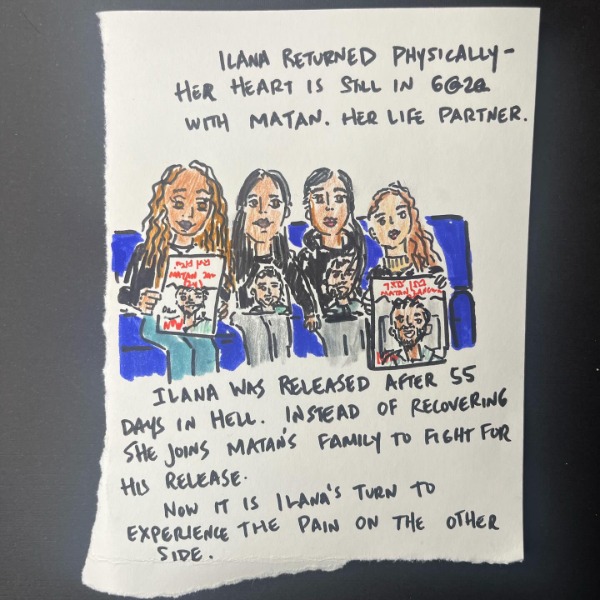 ILANA RETURNED PHYSICALLY-
HER HEART IS STILL IN G@Z@
WITH MATAN. HER LIFE PARTNER.
MATAN
MATAN
NOW
ILANA WAS RELEASED AFTER 55
DAYS IN HELL. INSTEAD OF RECOVERING
SHE JOINS MATAN'S FAMILY TO FIGHT FOR
HIS RELEASE.
NOW IT IS ILANA'S TURN TO
EXPERIENCE THE PAIN ON THE OTHER
SIDE.